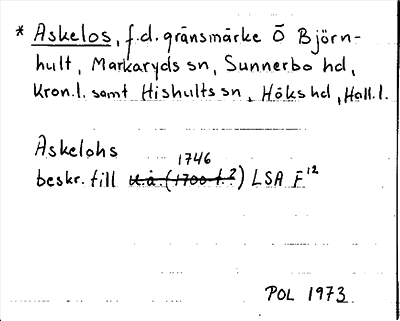 * Askelos, f.d. gränsmärke Ö Björn-
hult, Markaryds sn, Sunnerbo hd,
Kron.l. samt Hishults sn, Höks hd, Hall.l.
Askelohs
1746
beskr. till u.å. (1700-t.?) LSA F12
POL 1973